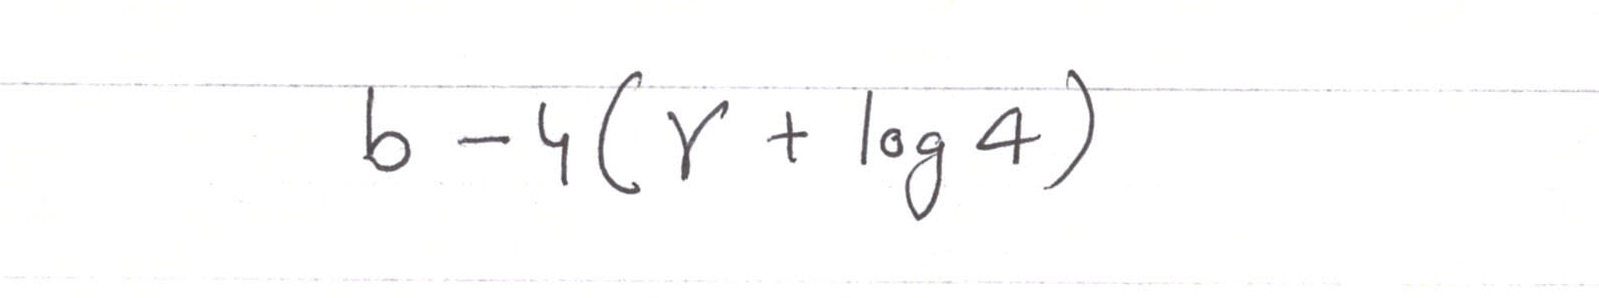 b - 4(γ + log 4)